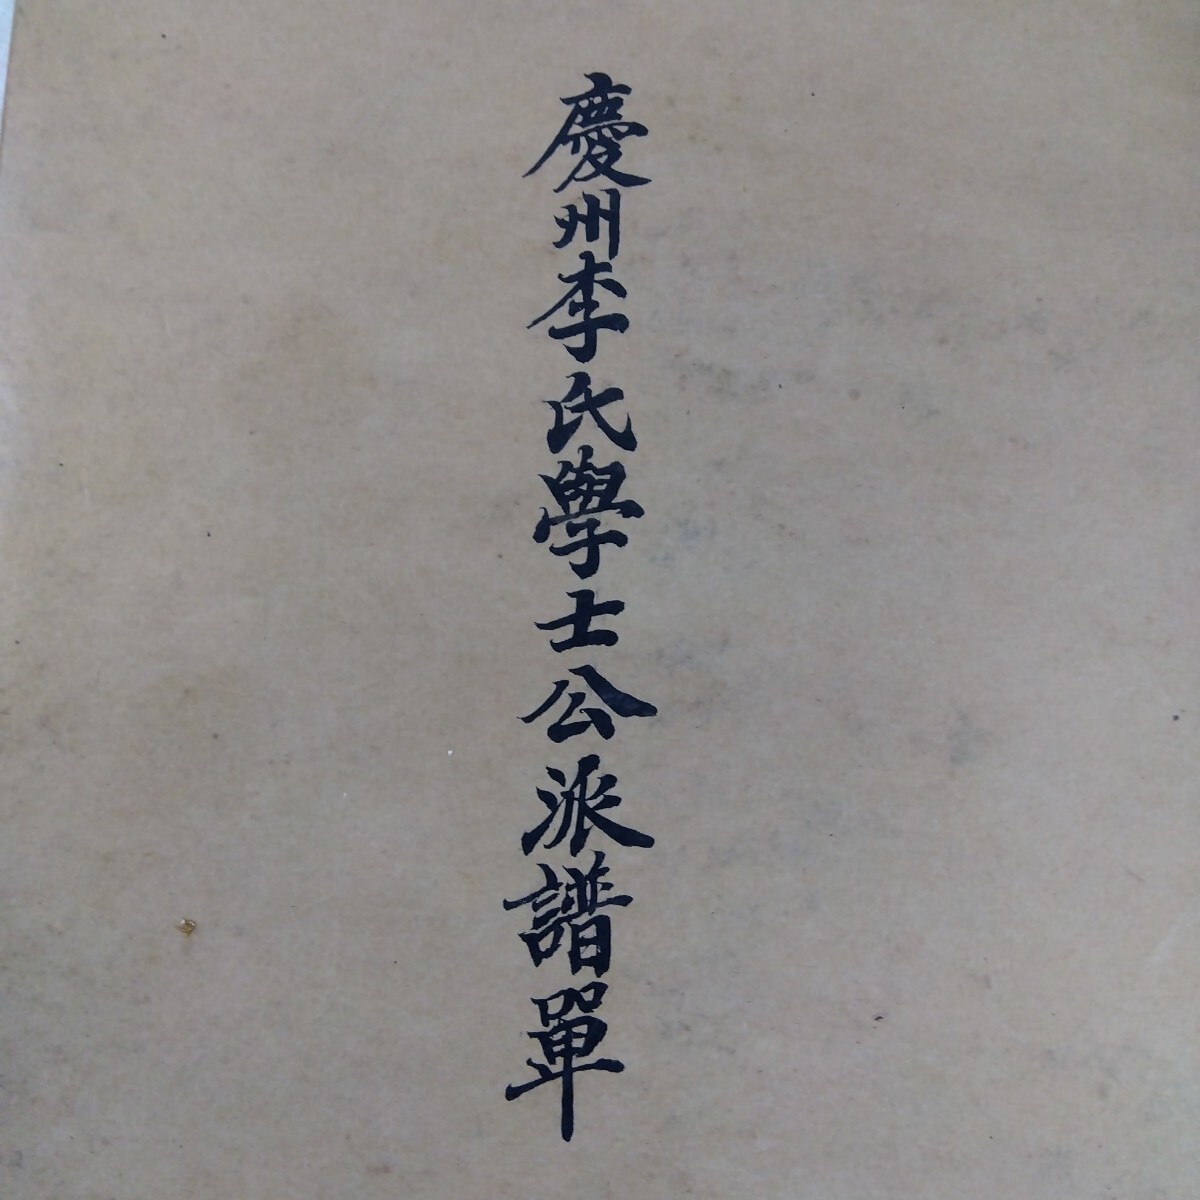 慶州李氏學士公派譜單